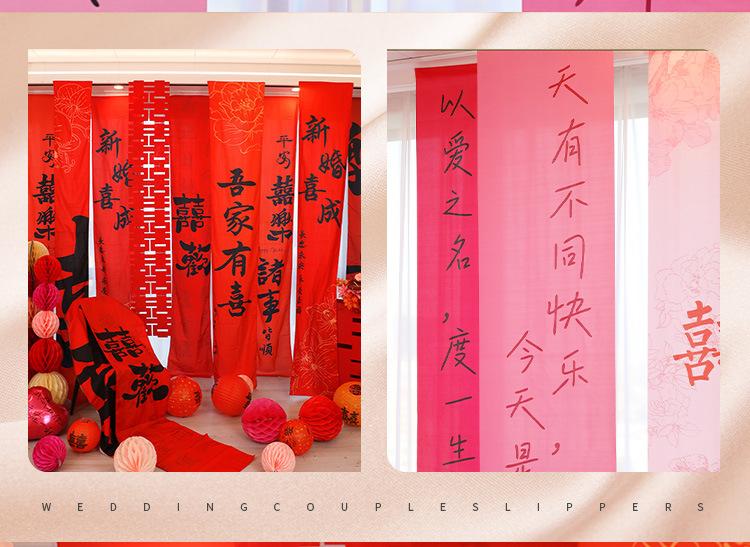 平安
囍樂
新婚
喜成
囍
歡
吾家有喜
平安
囍樂
諸事
皆順
新婚
喜成
囍
歡
以爱之名，度一生
天有不同快乐，
今天是
囍
WEDDINGCOUPLESLIPPERS